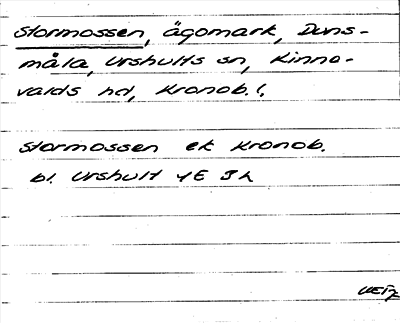 Stormossen, ägomark, Duns-
måla, Urshults sn, Kinne-
valds hd, Kronob. l.
Stormossen ek Kronob.
bl. Urshult 4E